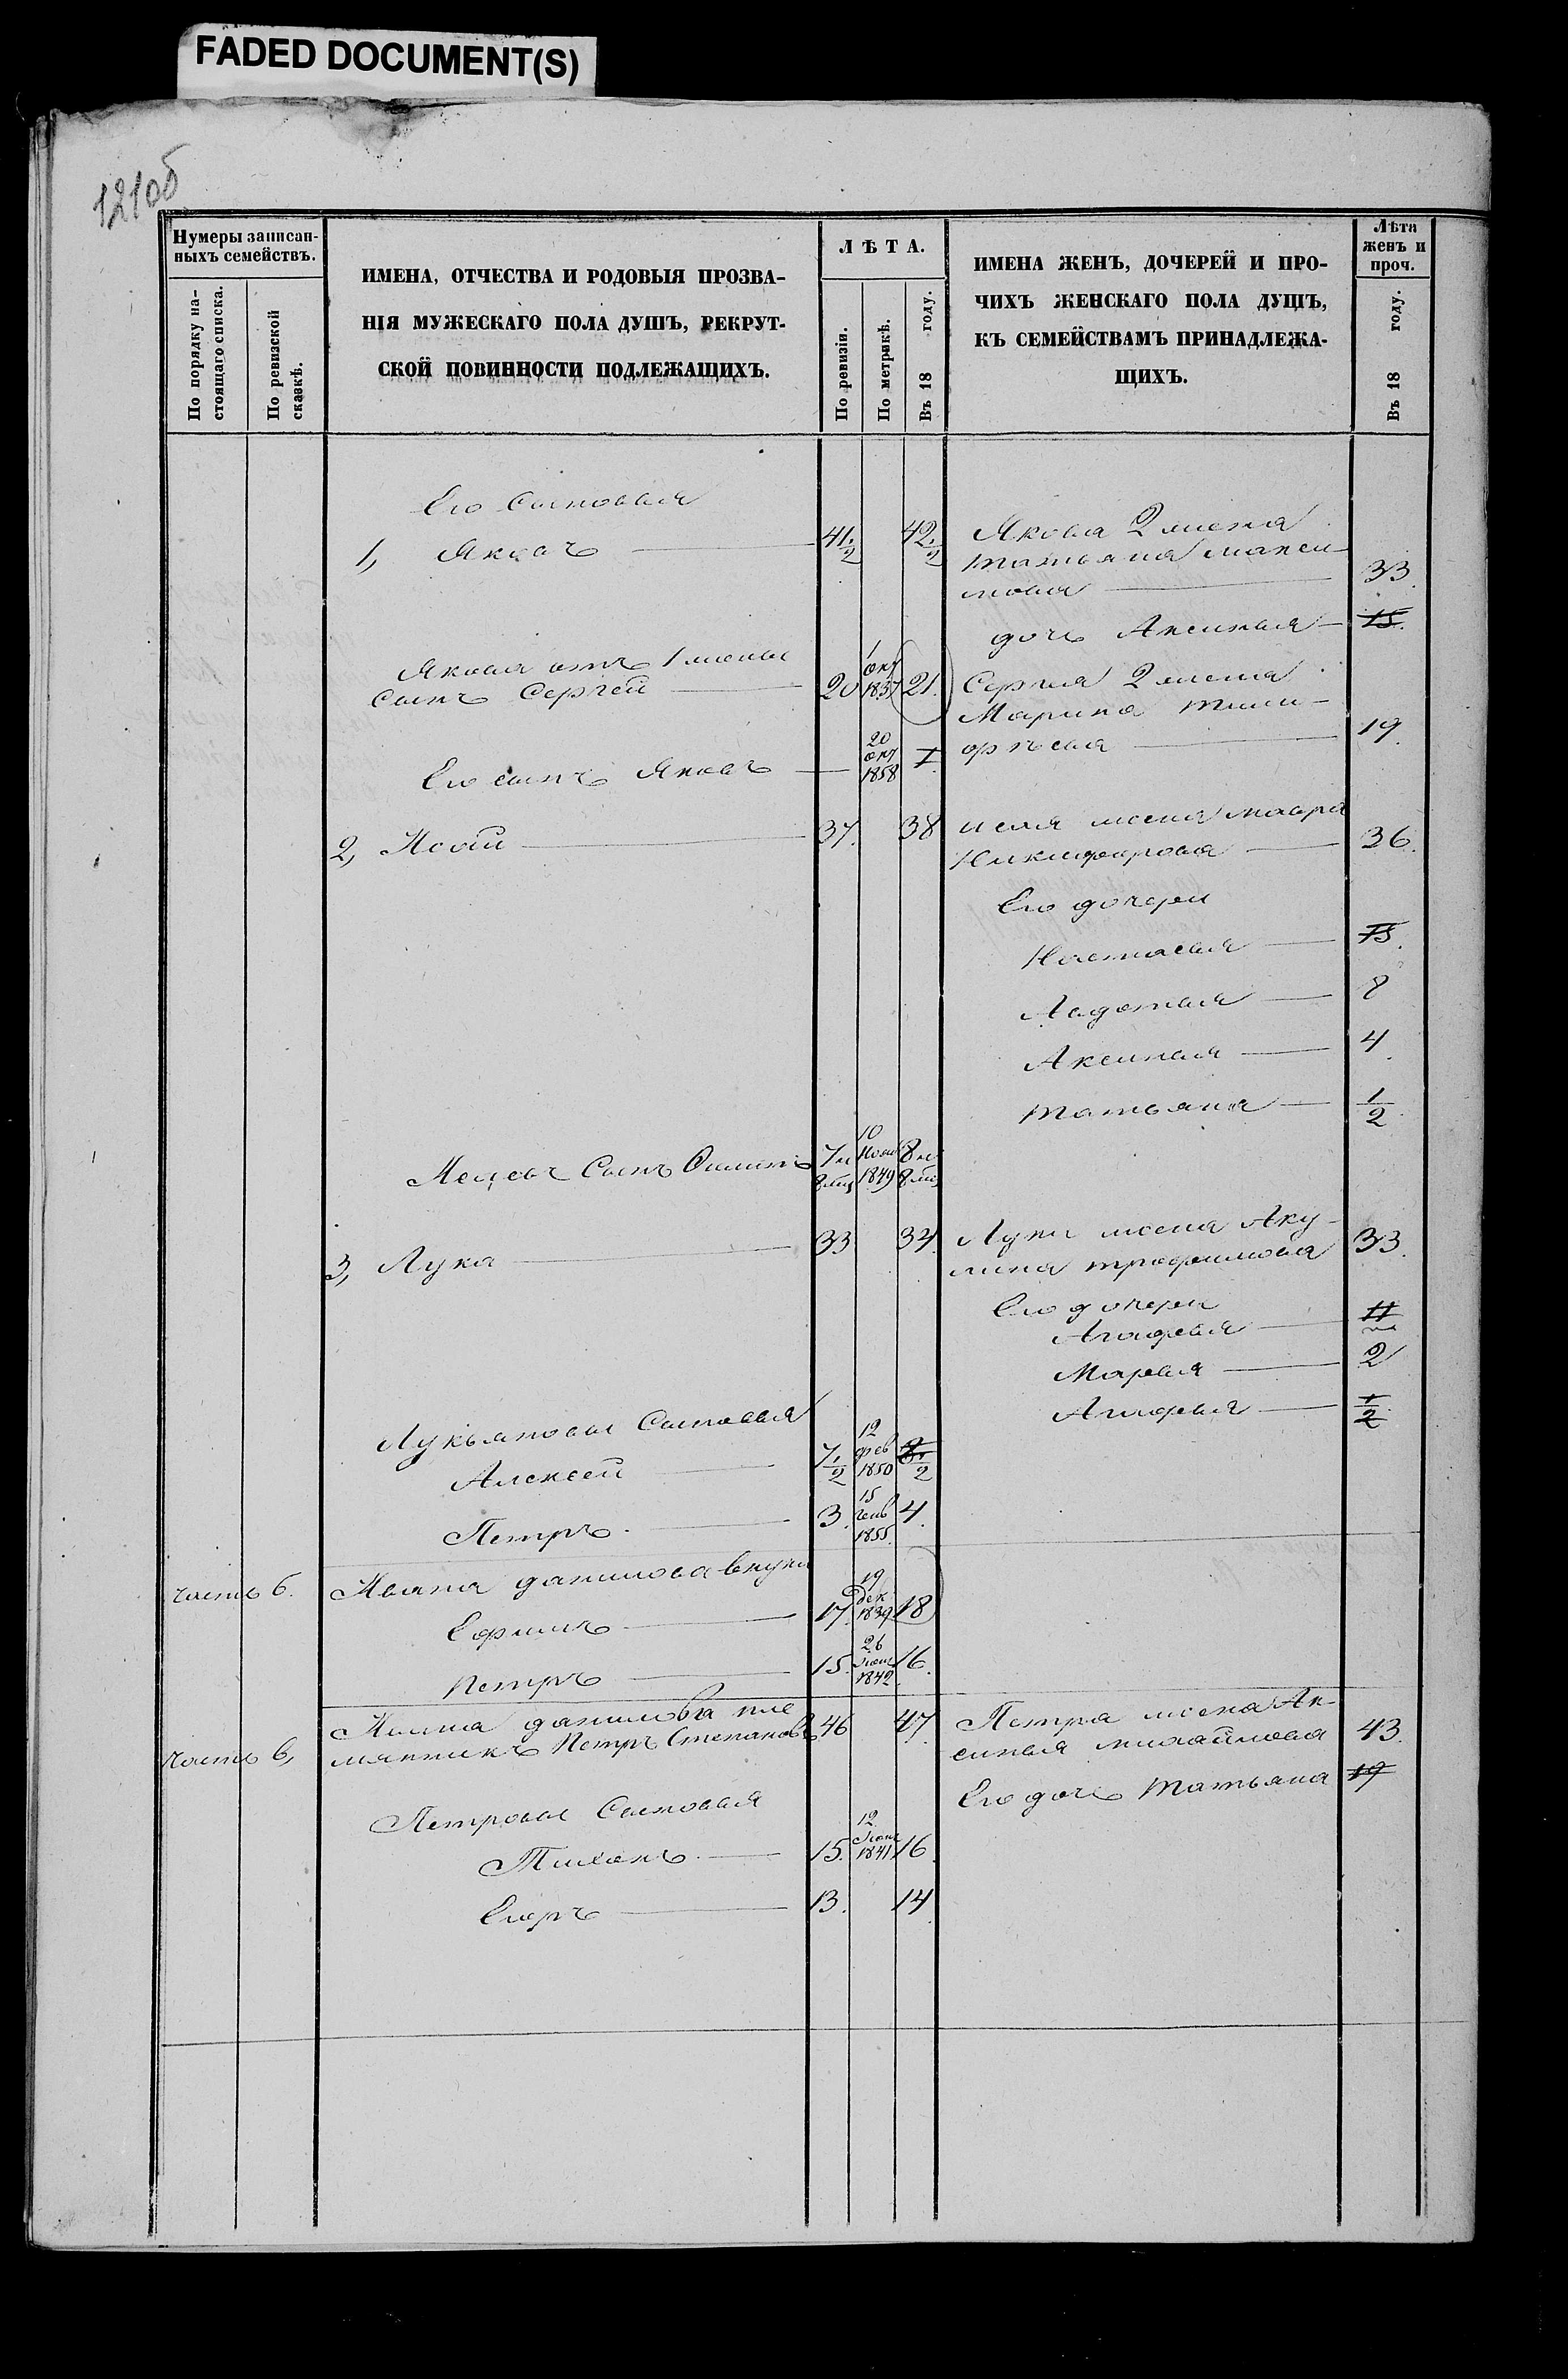 FADED DOCUMENT(S)
121об
Нумеры записан-
ныхъ семействъ.
По порядку на-
стоящаго списка.
По ревизской
сказкѣ.
ИМЕНА, ОТЧЕСТВА И РОДОВЫЯ ПРОЗВА-
НІЯ МУЖЕСКАГО ПОЛА ДУШЪ, РЕКРУТ-
СКОЙ ПОВИННОСТИ ПОДЛЕЖАЩИХЪ.
ЛѢТА.
По ревизіи.
По метрикѣ.
Въ 18 году.
ИМЕНА ЖЕНЪ, ДОЧЕРЕЙ И ПРО-
ЧИХЪ ЖЕНСКАГО ПОЛА ДУШЪ,
КЪ СЕМЕЙСТВАМЪ ПРИНАДЛЕЖА-
ЩИХЪ.
Лѣта
женъ и
проч.
Въ 18 году.
Его Сыновья
1, Яковъ 41 1/2 42 1/2
Якова 2 жена
татьяна макси-
мова 33.
дочь Аксинья 15.
Якова отъ 1 жены
сынъ Сергей 20 1 окт 1837 21.
Сергея 2 жена
Марина тимо-
фѣева 19.
Его сынъ Яковъ 20 окт 1858 1.
2, 37. 38
жена мавра
Никифорова 36.
Его дочери
Настасья 13.
Авдотья 8
Аксинья 4
татьяна 1/2
Сынъ 7 л 8 мц 10 1849 8 л 8 мц
3, Лука 33 34.
Луки жена Аку-
лина трофимова 33.
Его дочери
Агафья 11
Марья 2
Агафья 1/2
Лукьяновы Сыновья
Алексей 7 1/2 12 фев 1850 8 1/2
Петръ 3. 15 1855. 4.
часть б.
Ивана данилова внуки
Ефимъ 17. 19 дек 1839 18
Петръ 15. 26 1842 16.
часть в,
Ивана данилова пле
мянникъ Петръ Степановъ 46 47.
Петра жена Ак-
синья михайлова 43.
Его дочь татьяна 19
Петровы Сыновья
Тихонъ 15. 12 1841 16.
Егоръ 13. 14